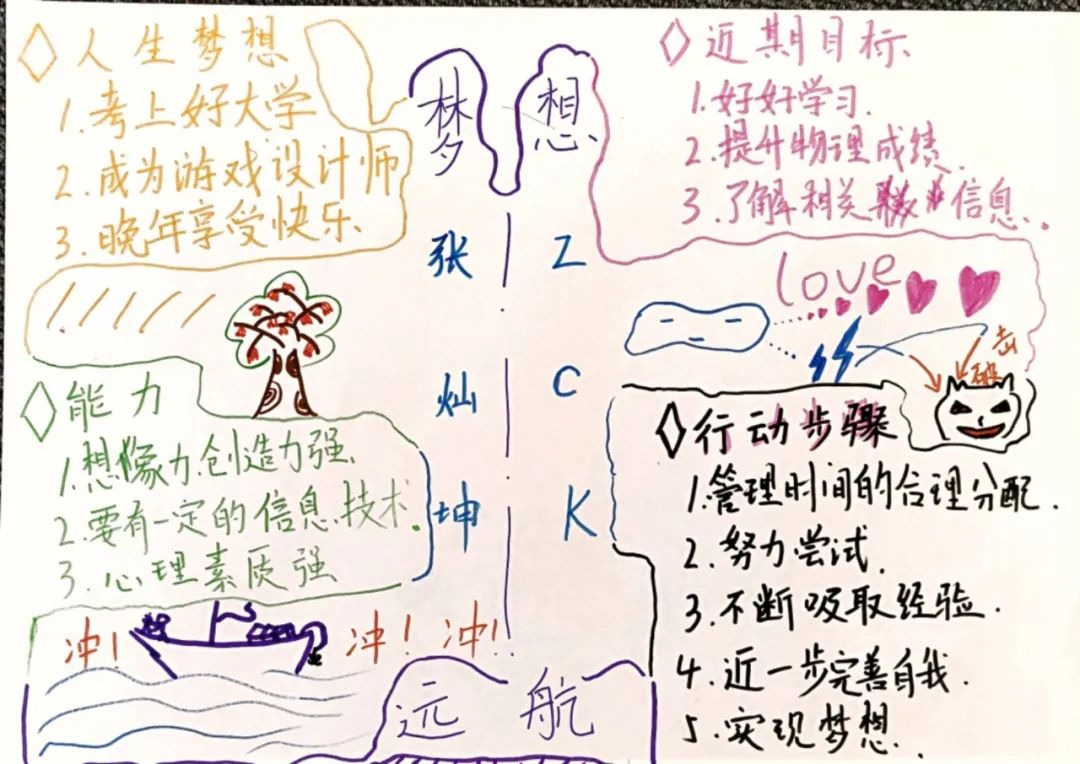 人生梦想
1.考上好大学
2.成为游戏设计师
3.晚年享受快乐
梦想
近期目标
1.好好学习.
2.提升物理成绩.
3.了解相关信息..
张 Z
灿 C
坤 K
love
击破
能力
1.想像力.创造力强.
2.要有一定的信息.技术.
3.心理素质强
行动步骤
1.管理时间的合理分配.
2.努力尝试.
3.不断吸取经验.
4.近一步完善自我.
5.实现梦想..
冲! 冲! 冲!..
远航